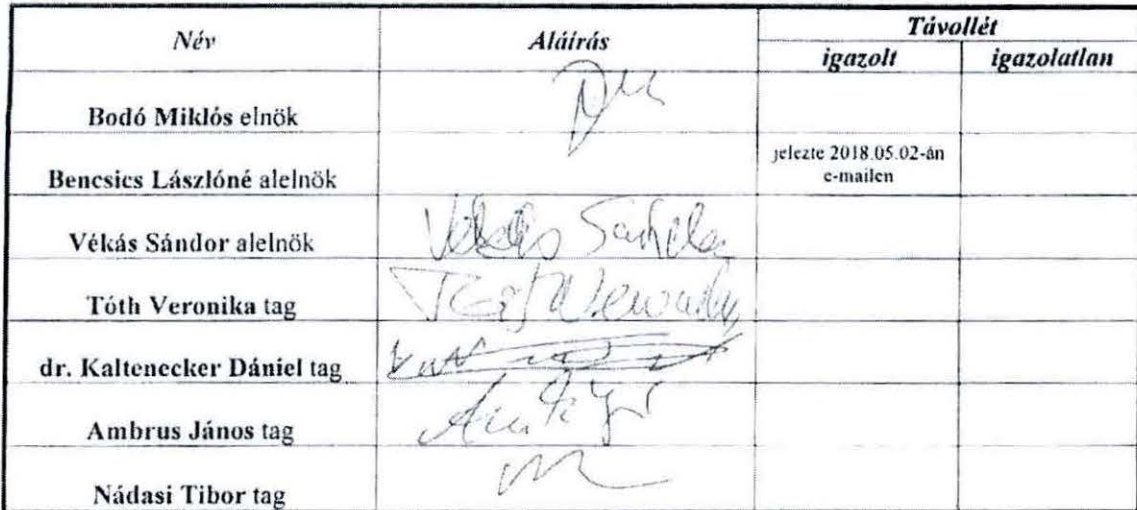 Név Aláírás Távollét
igazolt igazolatlan
Bodó Miklós elnök
Bencsics Lászlóné alelnök jelezte 2018.05.02-án
e-mailen
Vékás Sándor alelnök Vékás Sándor
Tóth Veronika tag Tóth Veronika
dr. Kaltenecker Dániel tag
Ambrus János tag
Nádasi Tibor tag